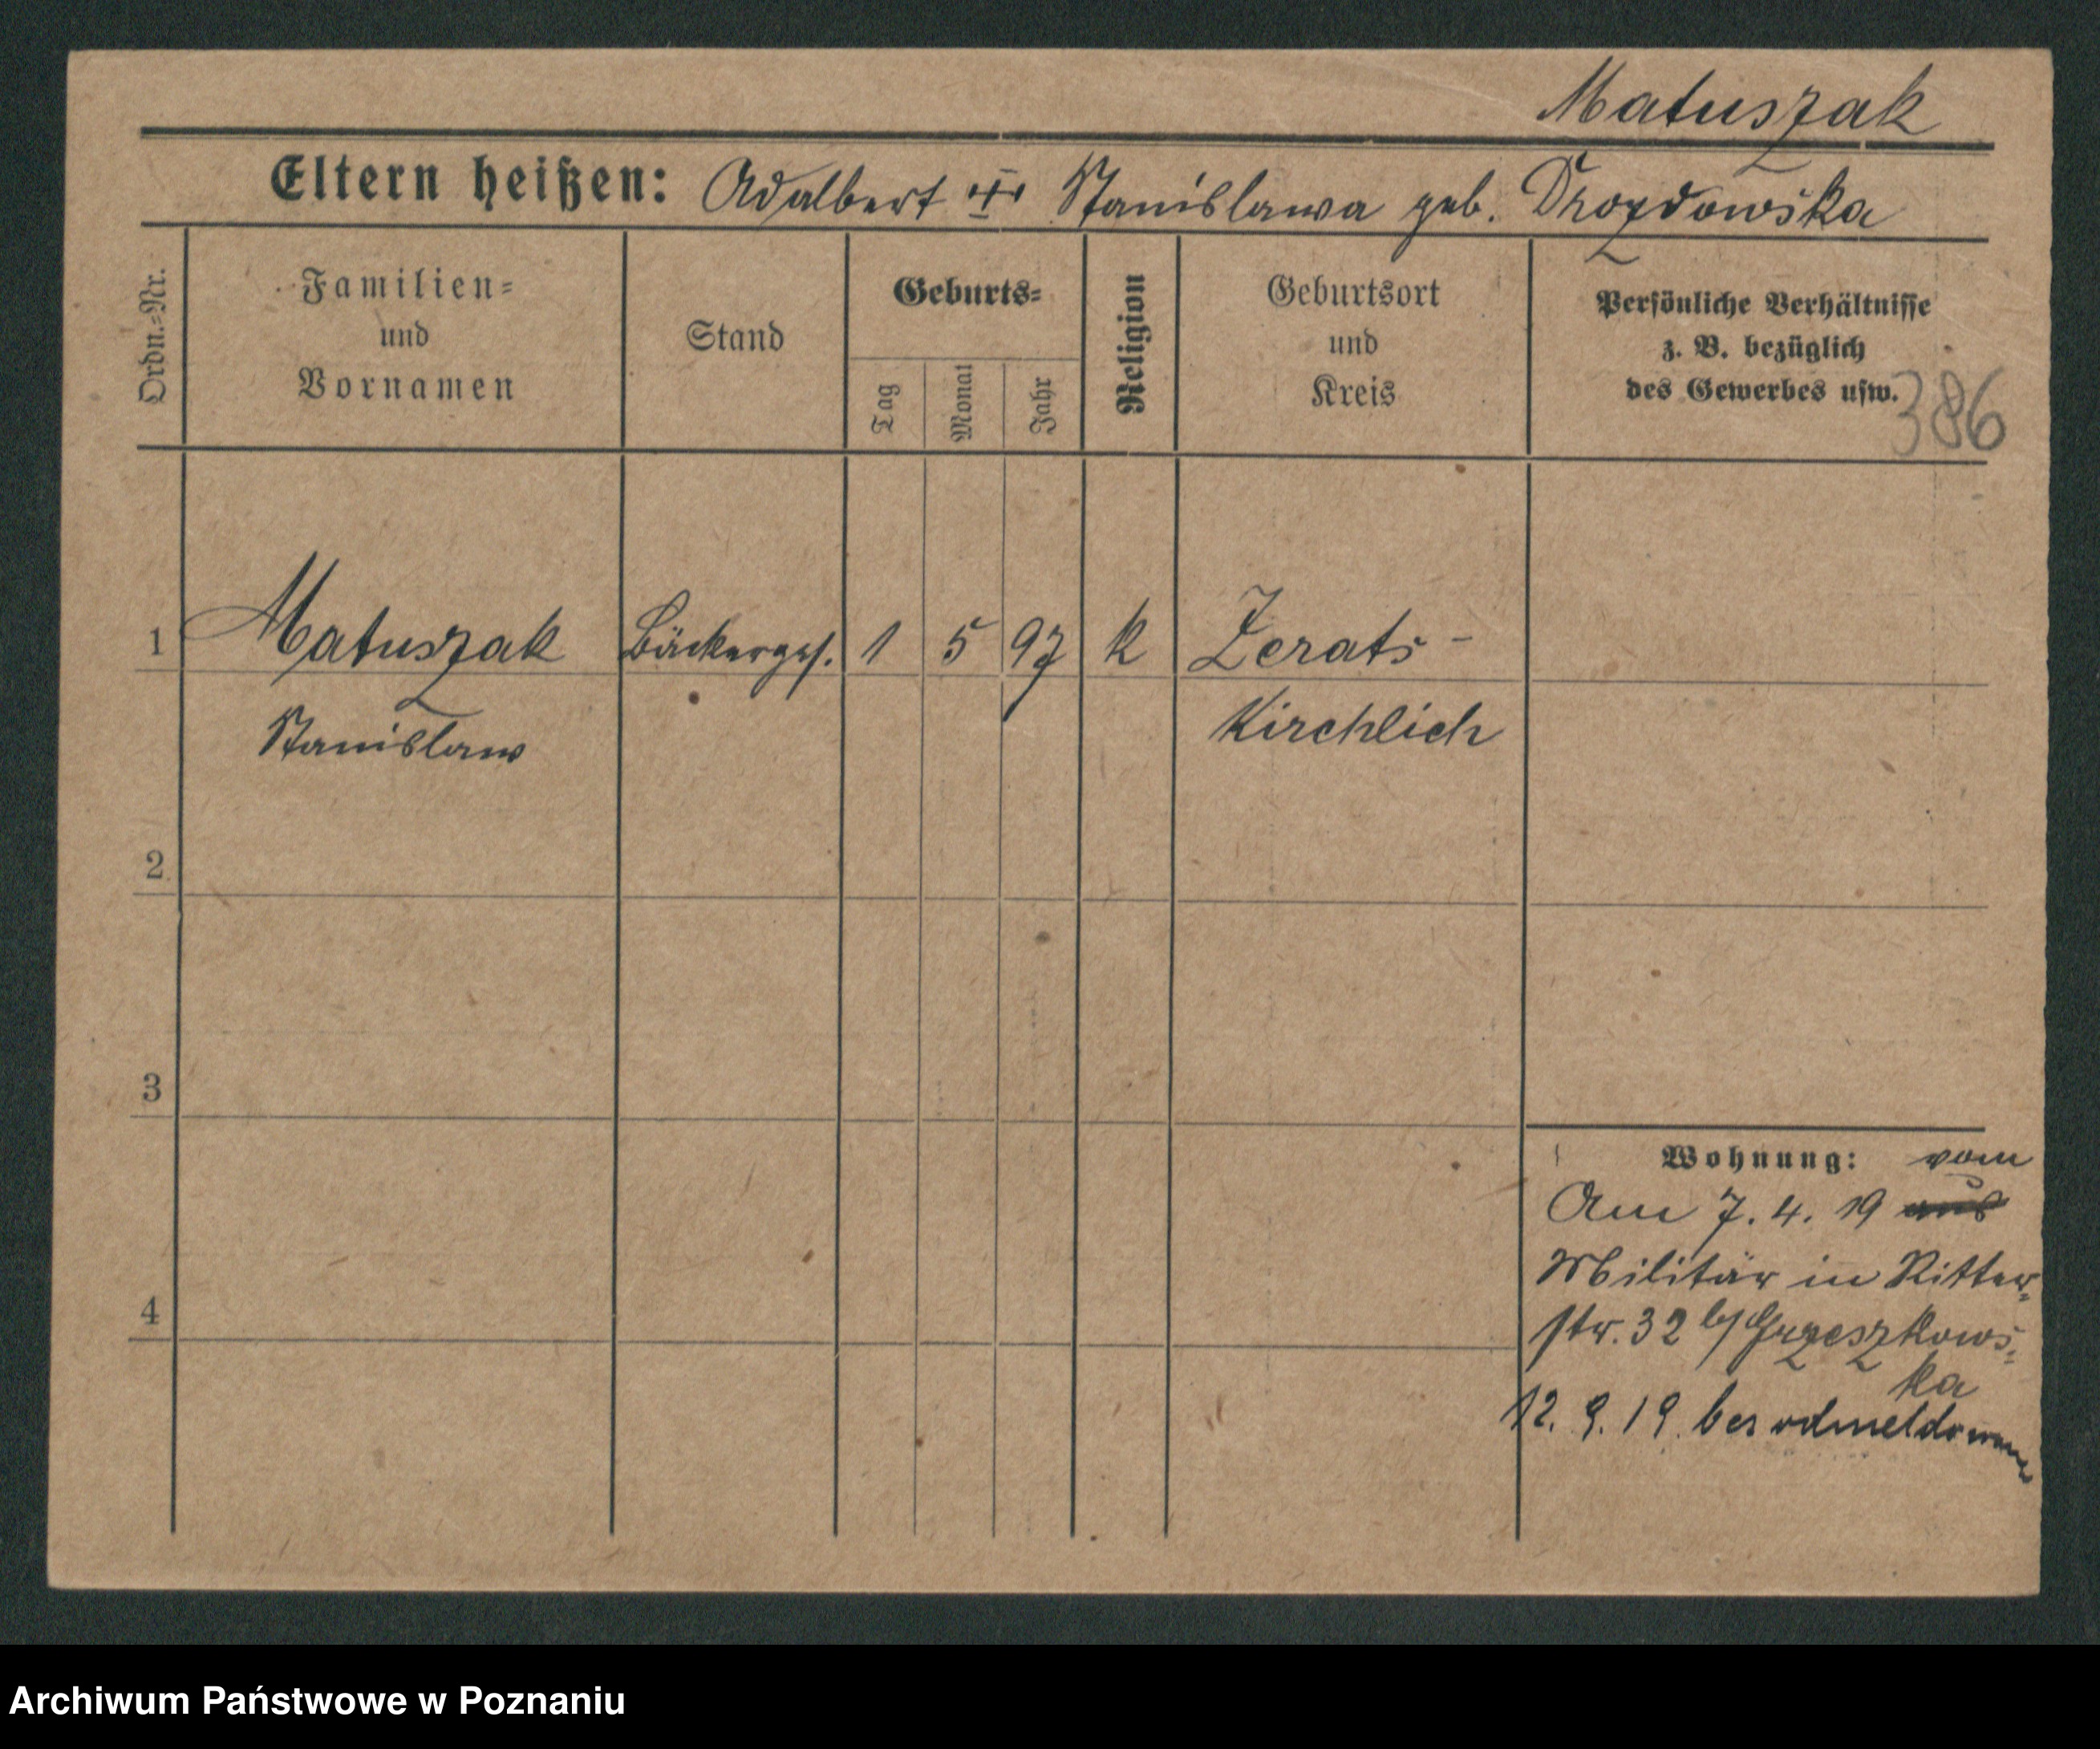 Matuszak
Eltern heißen: Adalbert Stanislawa geb. Drozdowska
Ordn.-Nr.
Familien-
und
Vornamen
Stand
Geburts-
Tag
Monat
Jahr
Religion
Geburtsort
und
Kreis
Persönliche Verhältnisse
z. B. bezüglich
des Gewerbes usw.
386
1 Matuszak Bäckerges. 1 5 97 k Zerats-
Stanislaw Kirchlich
2
3
4
Wohnung: vom
Am 7. 4. 19 aus
Militär in Ritter-
str. 32 b/ Grzeszkows-
ka
12. 9. 19. bes odmeldowania
Archiwum Państwowe w Poznaniu